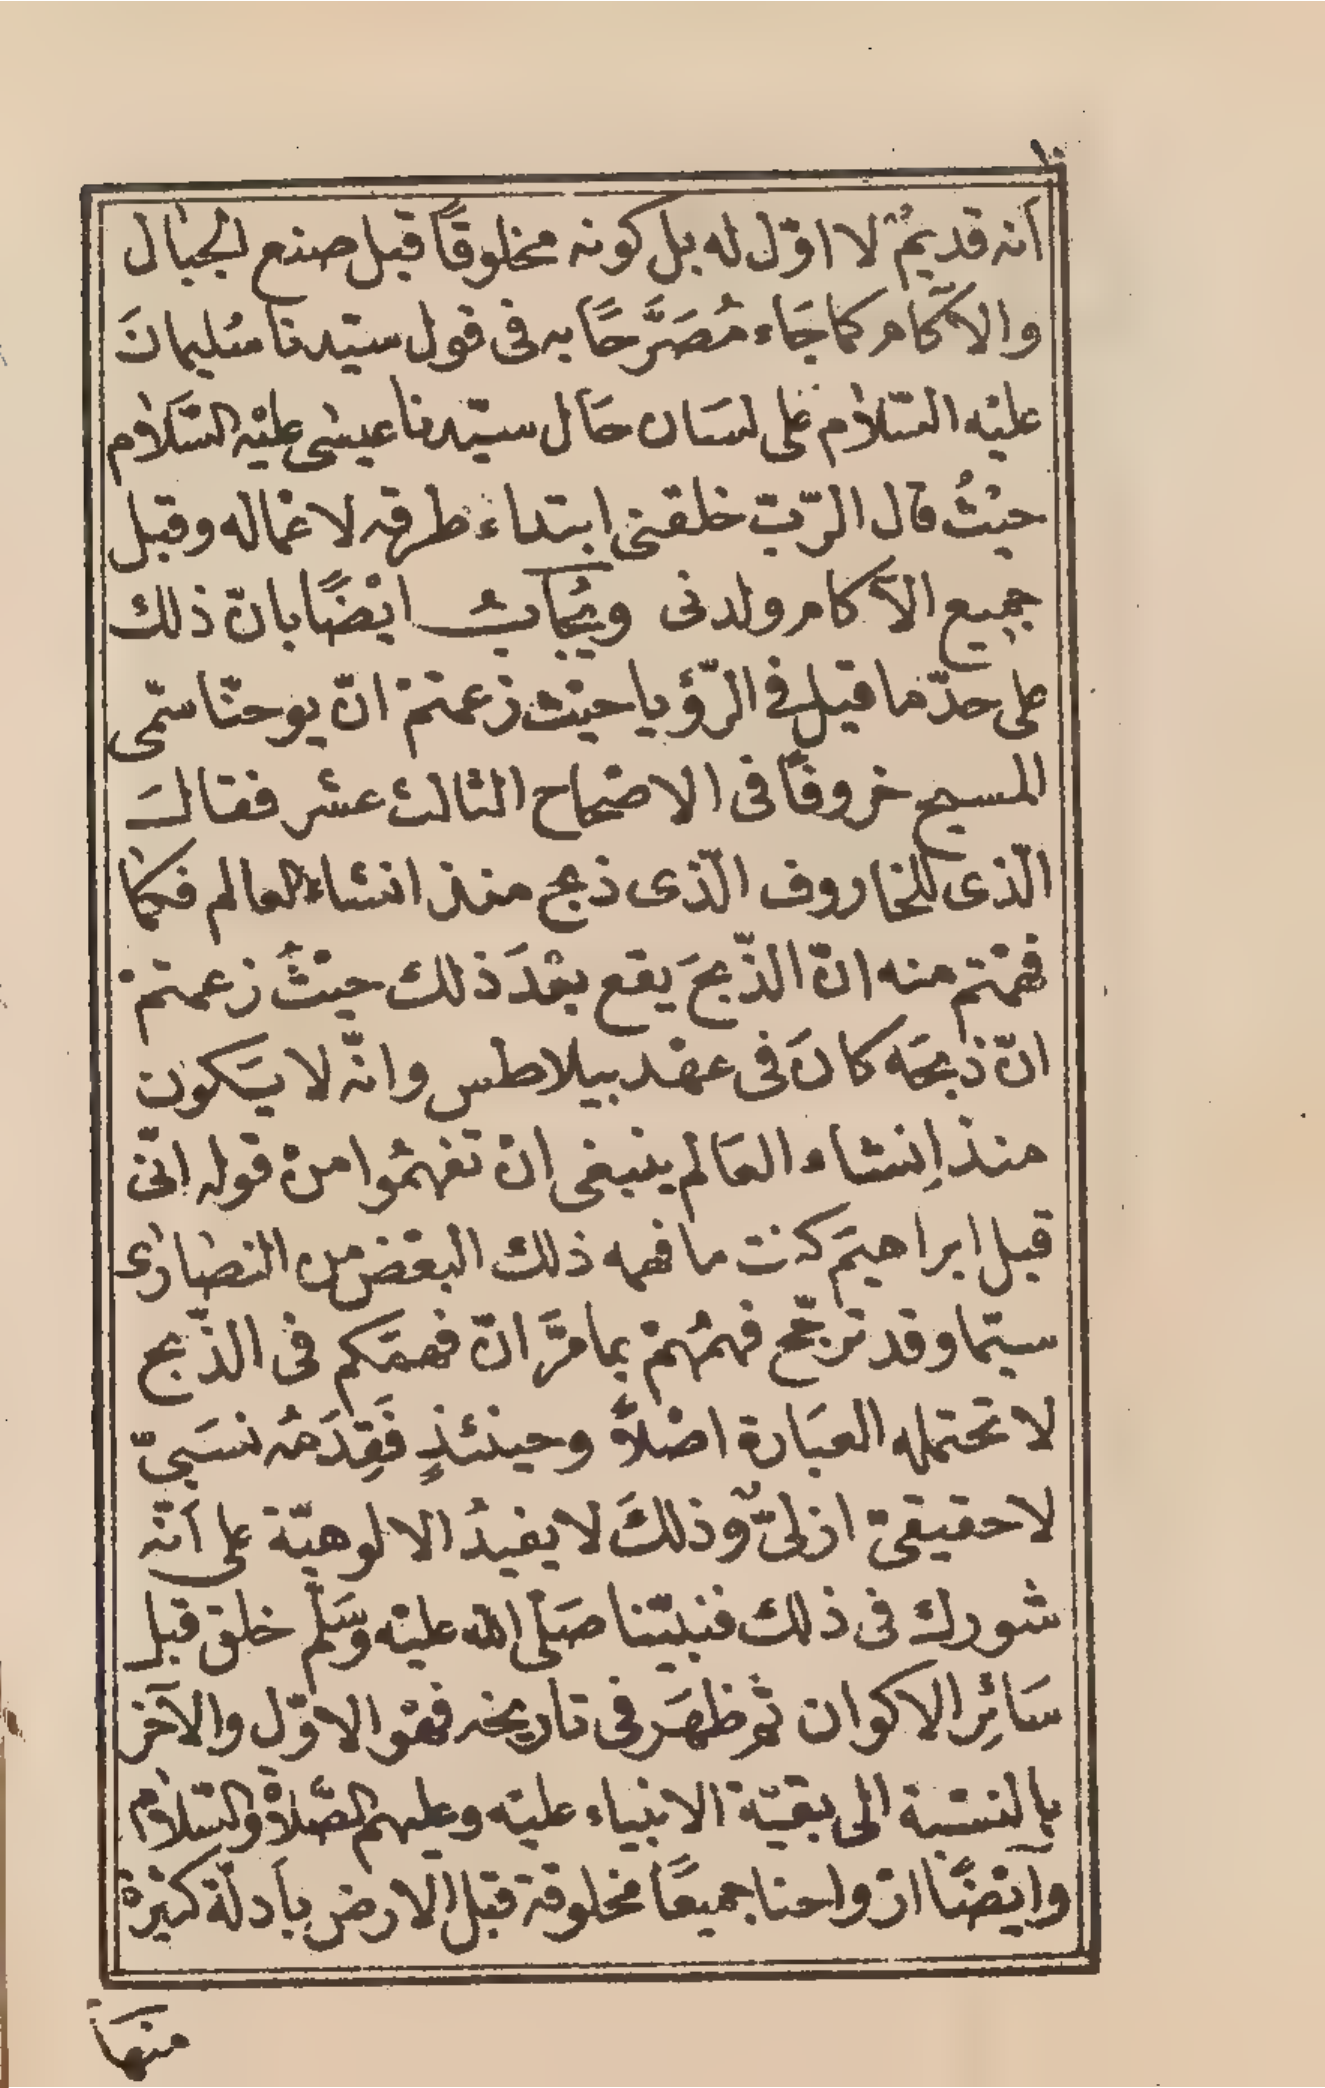 أنه قديمٌ لا اوّل له بل كونه مخلوقاً قبل صنع الجبال
والآكام كما جَاء مُصَرَّحًا به فى قول سيّدنا سُليمانَ
عليْه السّلام على لسَان حَال سيّدنا عيسٰى عليْه السَّلام
حيْثُ قال الرّبّ خلقنى ابتداء طرقه لاعْماله وقبل
جميع الآكام ولدنى ويُجَابُ ايْضًا بانّ ذلك
على حدّ ما قيل فى الرّؤيا حيْث زعمتمْ انّ يوحنّا سمّى
المسيح خروفًا فى الاصْحاح الثالث عشر فقالَ
الّذى للخاروف الّذى ذبح منذ انشاء العالم فكما
فهمْتم منه انّ الذّبحَ يقع بعْدَ ذلك حيْثُ زعمتمْ
انّ ذبحَه كانَ فى عهْد بيلاطس وانّه لا يَكون
منذ اِنشاء العَالم ينبغى انْ تفهمُوا منْ قوله انّى
قبل ابراهيمَ كنت ما فهمه ذلك البعْض من النصارٰى
سيّما وقد ترجّح فهمُهمْ بما مَرَّ انّ فهمَكم فى الذّبح
لا تحتمله العبَارة اصْلاً وحينئذٍ فَقِدَمُه نسَبىّ
لا حقيقىّ ازلىّ وذلكَ لا يفيدُ الالوهيّة على أنّه
شورك فى ذلك فنبيّنا صَلّى الله عليْه وَسَلّم خلق قبل
سَائِر الاكوان ثم ظهَر فى تاريخه فهْو الاوّل والآخر
بالنسْبة الى بقيّة الانبياء عليْه وعليهم الصَّلاةُ والسّلام
وأيْضًا ارْواحنا جميعًا مخلوقة قبل الارض بأدلّة كثيرةْ
منهَا